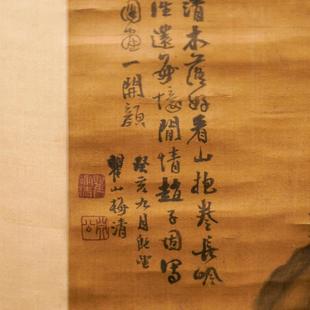 清木落好看山抱卷長吟
性還無憶閒情趙子固寫
圖畫一開顏
癸亥九月既望
瞿山梅清